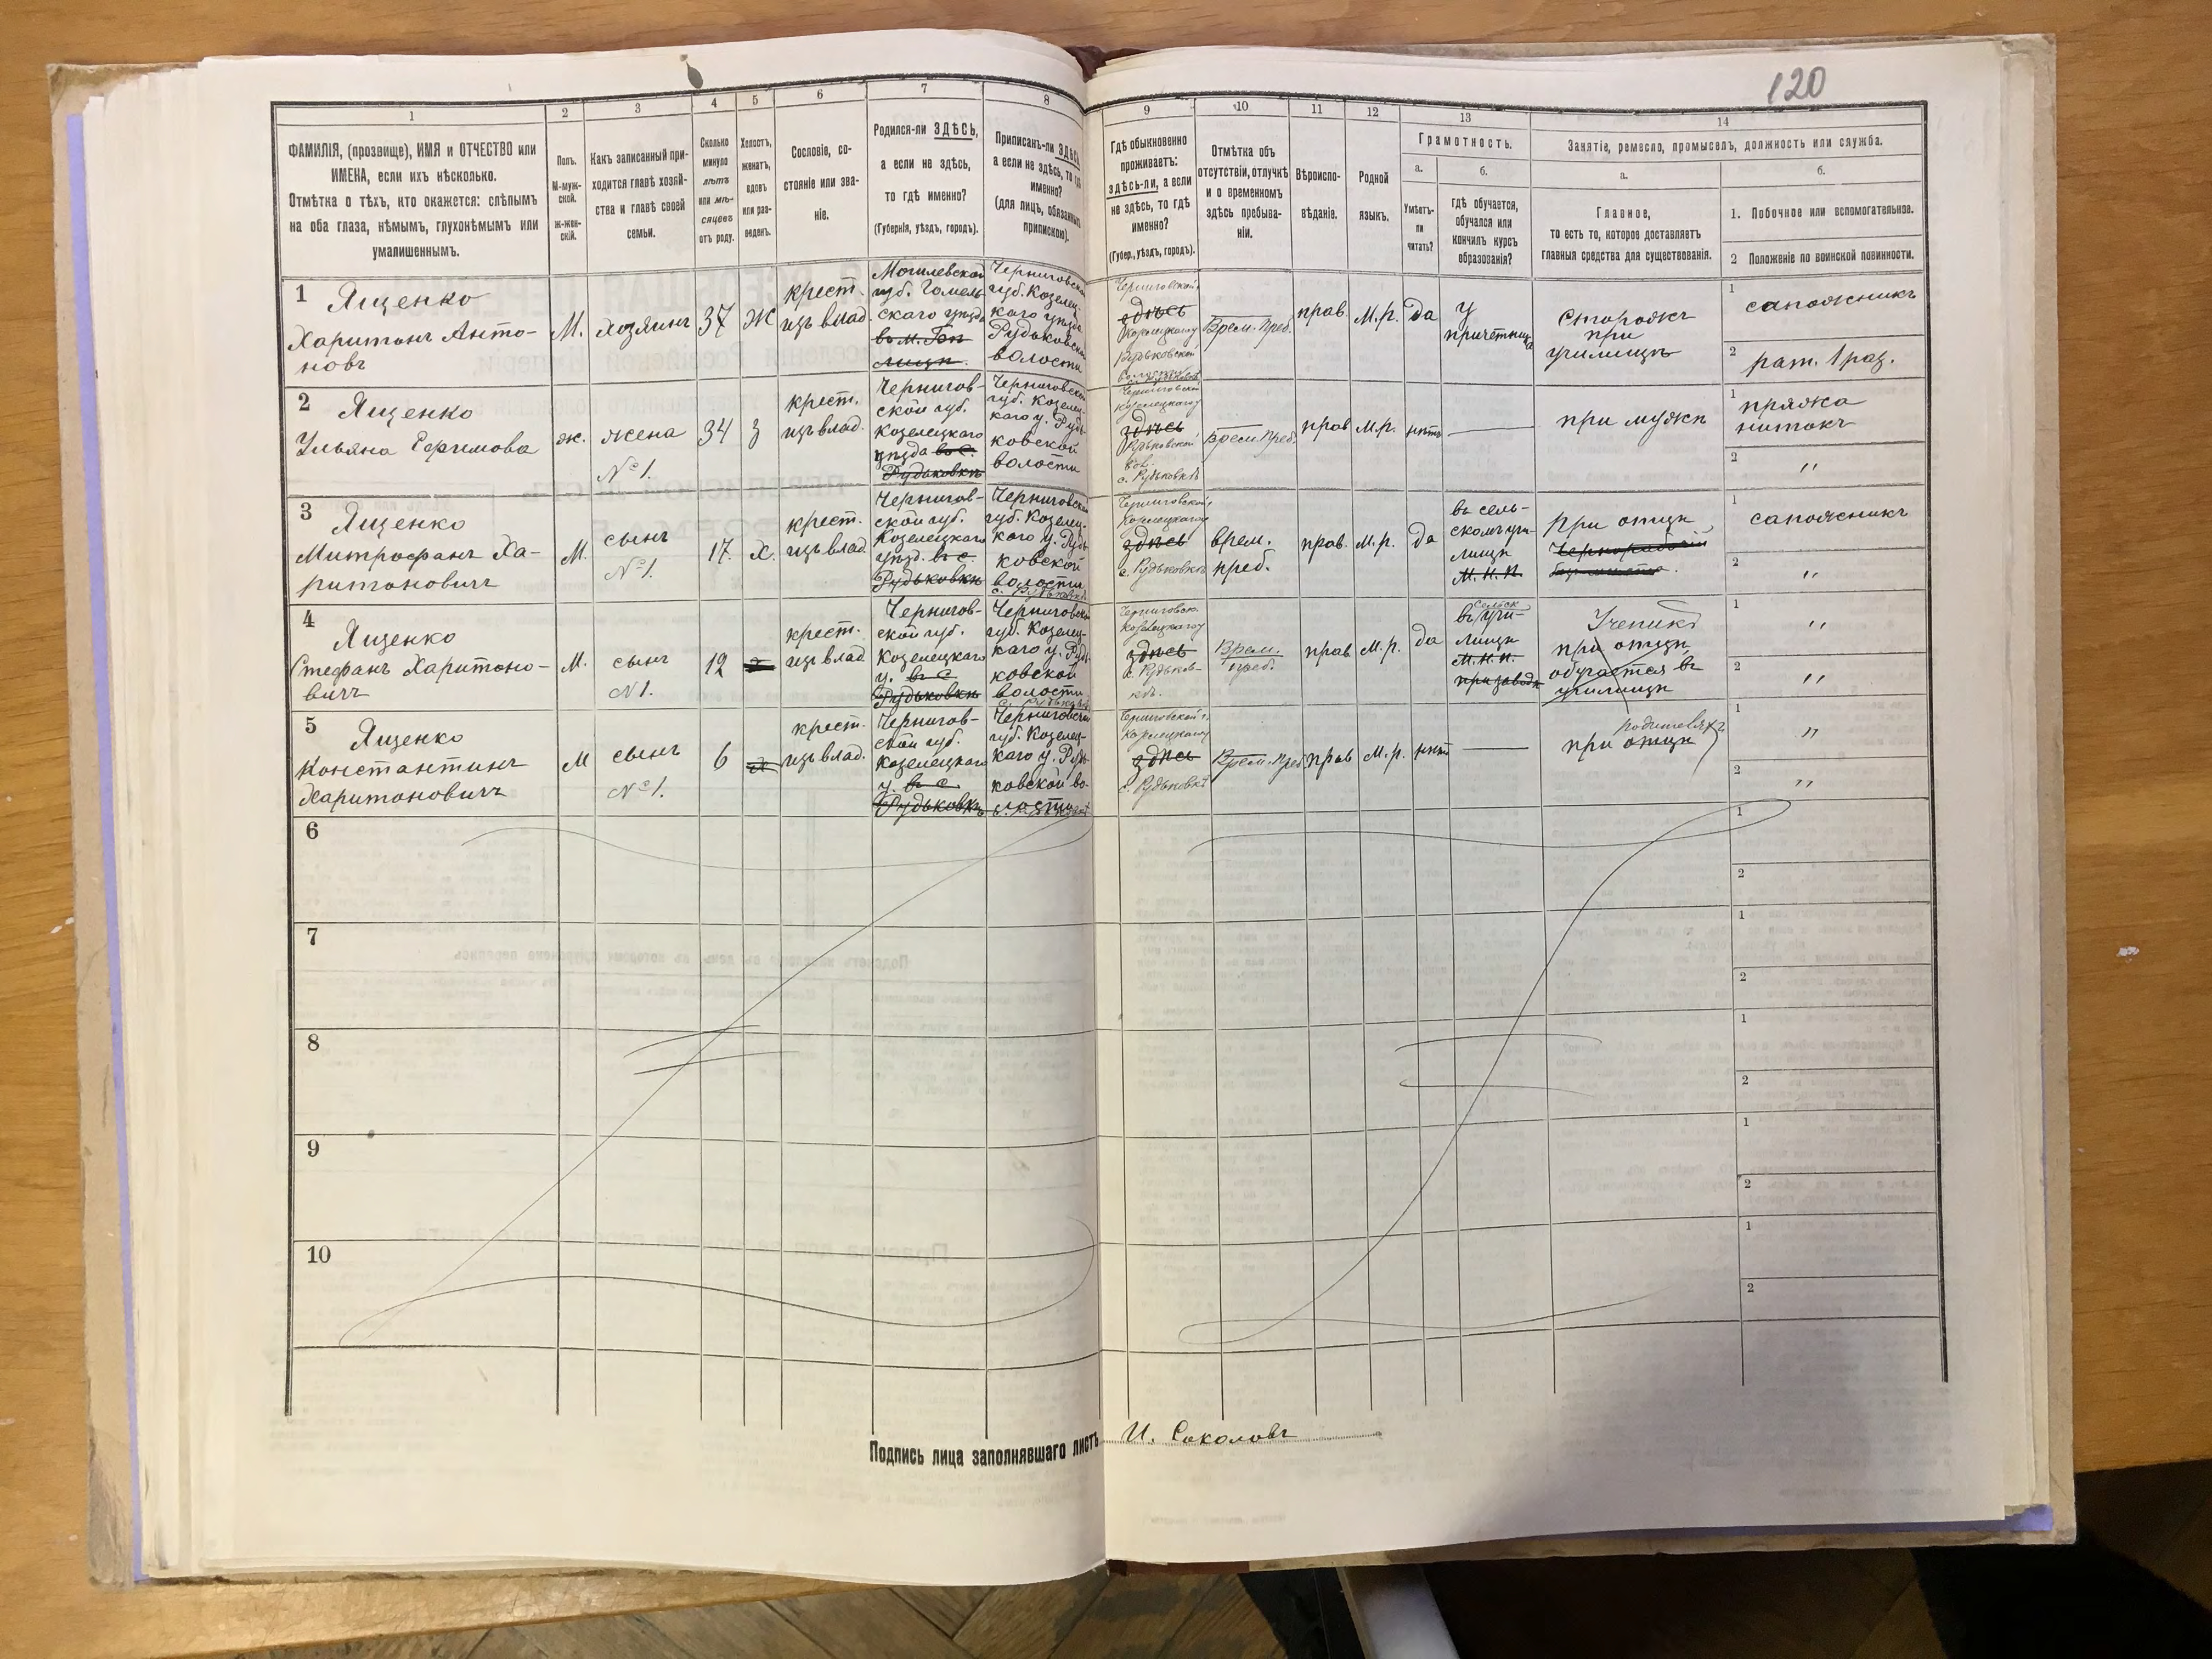 120
1
2
3
4
5
6
7
8
9
10
11
12
13
14
ФАМИЛІЯ, (прозвище), ИМЯ и ОТЧЕСТВО или
ИМЕНА, если ихъ нѣсколько.
Отмѣтка о тѣхъ, кто окажется: слѣпымъ
на оба глаза, нѣмымъ, глухонѣмымъ или
умалишеннымъ.
Полъ.
М-муж-
ской.
Ж-жен-
скій.
Какъ записанный при-
ходится главѣ хозяй-
ства и главѣ своей
семьи.
Сколько
минуло
лѣтъ
или мѣ-
сяцевъ
отъ роду.
Холостъ,
женатъ,
вдовъ
или раз-
веденъ.
Сословіе, со-
стояніе или зва-
ніе.
Родился-ли ЗДѢСЬ,
а если не здѣсь,
то гдѣ именно?
(Губернія, уѣздъ, городъ).
Приписанъ-ли ЗДѢСЬ
а если не здѣсь, то гдѣ
именно?
(для лицъ, обязанныхъ
припискою).
Гдѣ обыкновенно
проживаетъ:
здѣсь-ли, а если
не здѣсь, то гдѣ
именно?
(Губер., уѣздъ, городъ).
Отмѣтка объ
отсутствіи, отлучкѣ
и о временномъ
здѣсь пребыва-
ніи.
Вѣроиспо-
вѣданіе.
Родной
языкъ.
Грамотность.
а.
Умѣетъ-
ли
читать?
б.
гдѣ обучается,
обучался или
кончилъ курсъ
образованія?
Занятіе, ремесло, промыселъ, должность или служба.
а.
Главное,
то есть то, которое доставляетъ
главныя средства для существованія.
б.
1. Побочное или вспомогательное.
2 Положеніе по воинской повинности.
1
Ященко
Харитонъ Анто-
новъ
М.
хозяинъ
37
Ж
крест.
изъ влад.
Могилевской
губ. Гомель-
скаго уѣзда
Черниговской
губ. Козелец-
каго уѣзда
Рудьковской
волости
Черниговской
здѣсь
Козелецкаго у
Рудьковской
волости
Врем. преб.
прав.
М.р.
да
у
причетника
Сторожъ
при
училищѣ
1
сапожникъ
2
рат. 1 раз.
2
Ященко
Ульяна Ефимова
ж.
жена
№ 1.
34
З
крест.
изъ влад.
Чернигов-
ской губ.
Козелецкаго
уѣзда въ с.
Рудьковкѣ
Черниговской
губ. Козелец-
каго у. Рудь-
ковской
волости
Черниговской
Козелецкаго у
здѣсь
Рудьковской
вол.
с. Рудьковкѣ
Врем. преб.
прав
М.р.
нѣтъ
при мужѣ
1
пряжа
нитокъ
2
"
3
Ященко
Митрофанъ Ха-
ритоновичъ
М.
сынъ
№ 1.
17.
Х.
крест.
изъ влад.
Чернигов-
ской губ.
Козелецкаго
уѣзд. въ с.
Рудьковкѣ
Черниговской
губ. Козелец-
каго у. Рудь-
ковской
волости
с. Рудьковкѣ
Черниговской г.
Козелецкаго у
здѣсь
с. Рудьковкѣ
врем.
преб.
прав.
М.р.
да
въ сель-
скомъ учи-
лищѣ
М. Н. П.
при отцѣ
Чернорабочій
1
сапожникъ
2
"
4
Ященко
Стефанъ Харитоно-
вичъ
М.
сынъ
№ 1.
12
крест.
изъ влад
Чернигов-
ской губ.
Козелецкаго
у. въ с.
Рудьковкѣ
Черниговской
губ. Козелец-
каго у. Рудь-
ковской
волости
с. Рудьковкѣ
Черниговск.
Козелецкаго у
здѣсь
с. Рудьков-
кѣ.
Врем.
преб.
прав
М.р.
да
сельск
въ учи-
лищѣ
М. Н. П.
Ученикъ
при отцѣ
обучается въ
училищѣ
1
"
2
"
5
Ященко
Константинъ
Харитоновичъ
М
сынъ
№ 1.
6
крест.
изъ влад.
Чернигов-
ской губ.
Козелецкаго
у. въ с.
Рудьковкѣ
Черниговской
губ. Козелец-
каго у. Рудь-
ковской во-
лости
Черниговской г.
Козелецкаго у
здѣсь
с. Рудьковкѣ
Врем. преб
прав
М.р.
нѣтъ
родителяхъ
при отцѣ
1
"
2
"
6
1
2
7
1
2
8
1
2
9
1
2
10
1
2
Подпись лица заполнявшаго листъ И. Соколовъ